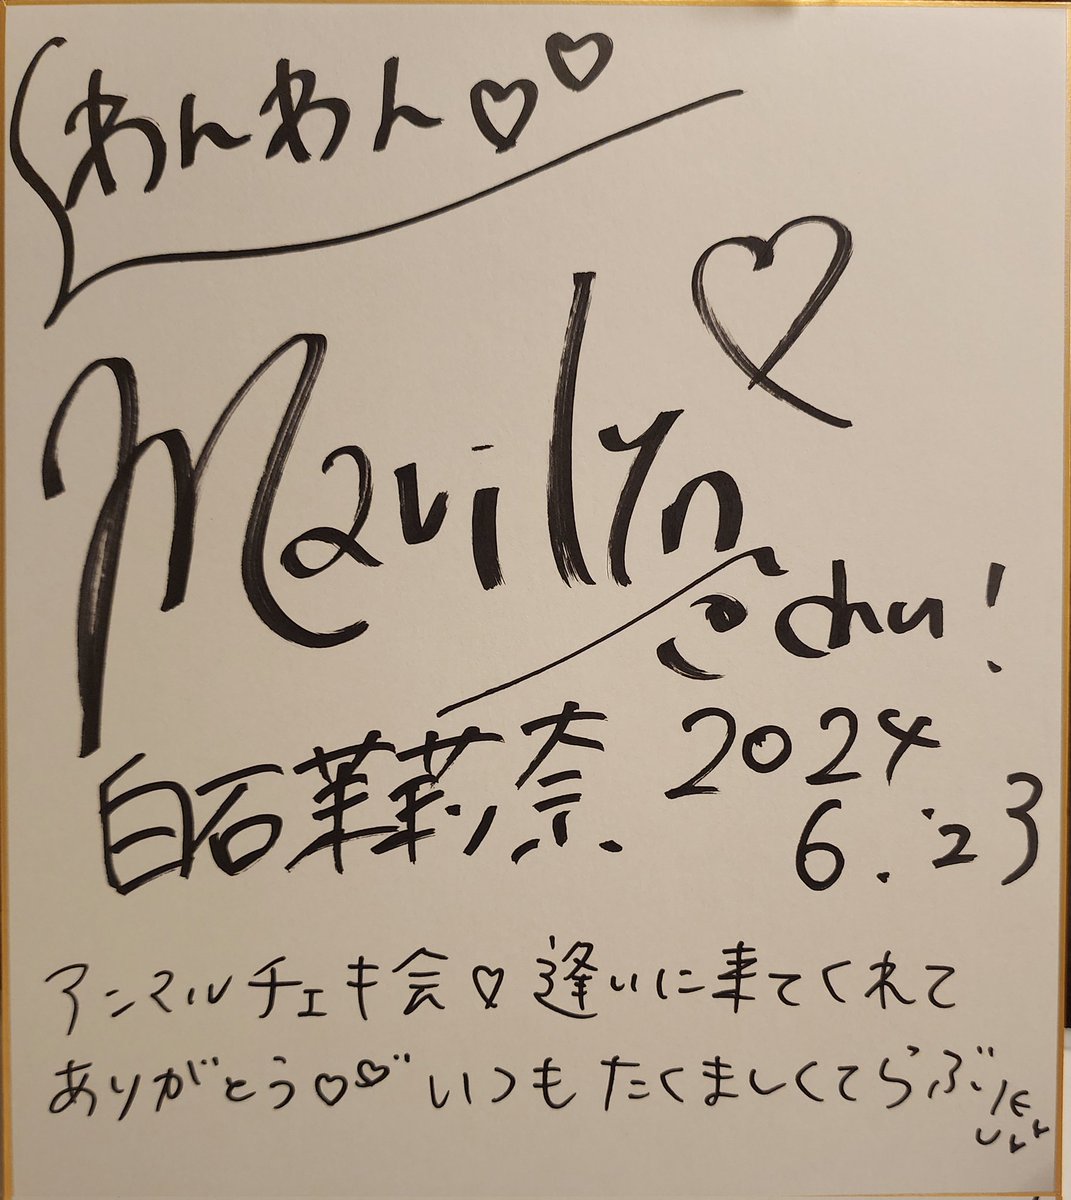 わんわん♡♡
Marilyn♡
chu!
白石茉莉奈 2024
6.23
アンマルチェキ会♡逢いに来てくれて
ありがとう♡♡いつもたくましくてらぶ